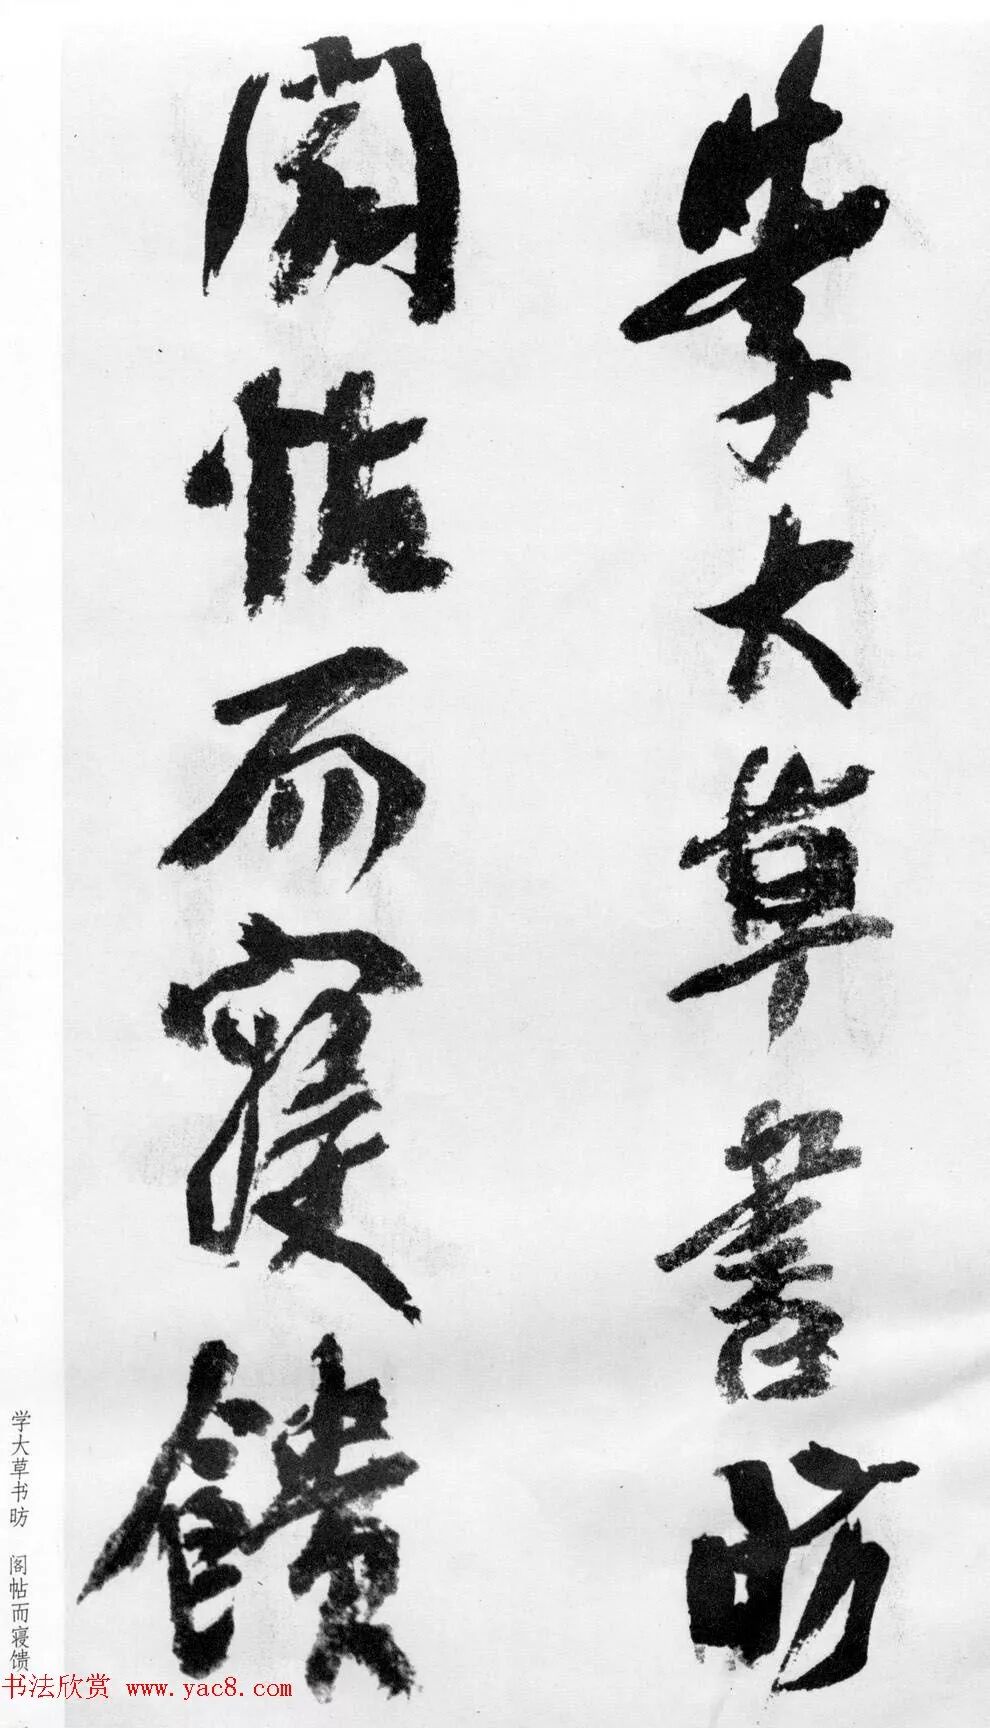 学大草书昉
阁帖而寝馈
学大草书昉 阁帖而寝馈
书法欣赏 www.yac8.com